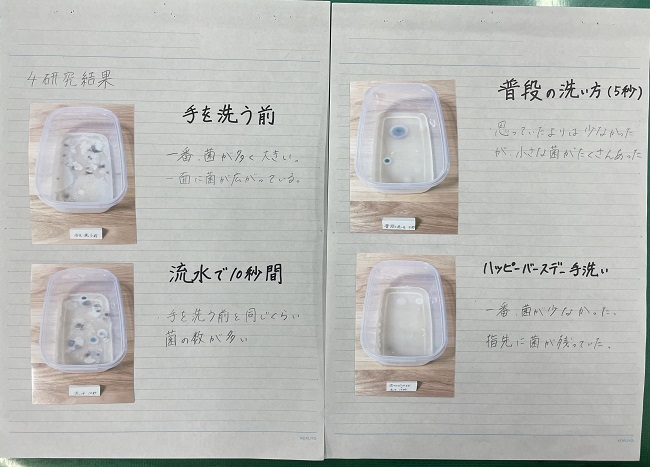 4 研究結果
手を洗う前
一番、菌が多く大きい。
一面に菌が広がっている。
流水で10秒間
手を洗う前と同じくらい
菌の数が多い
KOKUYO
普段の洗い方(5秒)
思っていたよりは少なかった
が、小さな菌がたくさんあった
ハッピーバースデー手洗い
一番 菌が少なかった。
指先に菌が残っていた。
KOKUYO